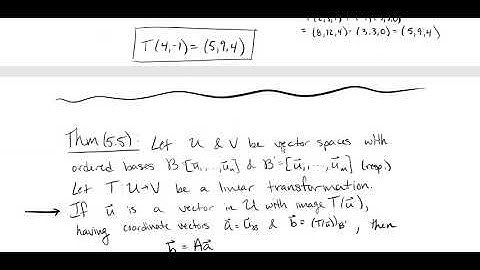 = (8,12,4) - (3,3,0) = (5,9,4)
T(4,-1) = (5,9,4)
Thm (5.5): Let U & V be vector spaces with
ordered bases B=[u⃗₁,...,u⃗ₙ] & B'=[u⃗₁,...,u⃗ₘ] (resp.)
Let T: U→V be a linear transformation.
If u⃗ is a vector in U with image T(u⃗),
having coordinate vectors a⃗ = u⃗_B & b⃗ = (T(u⃗))_B', then
b⃗ = Aa⃗